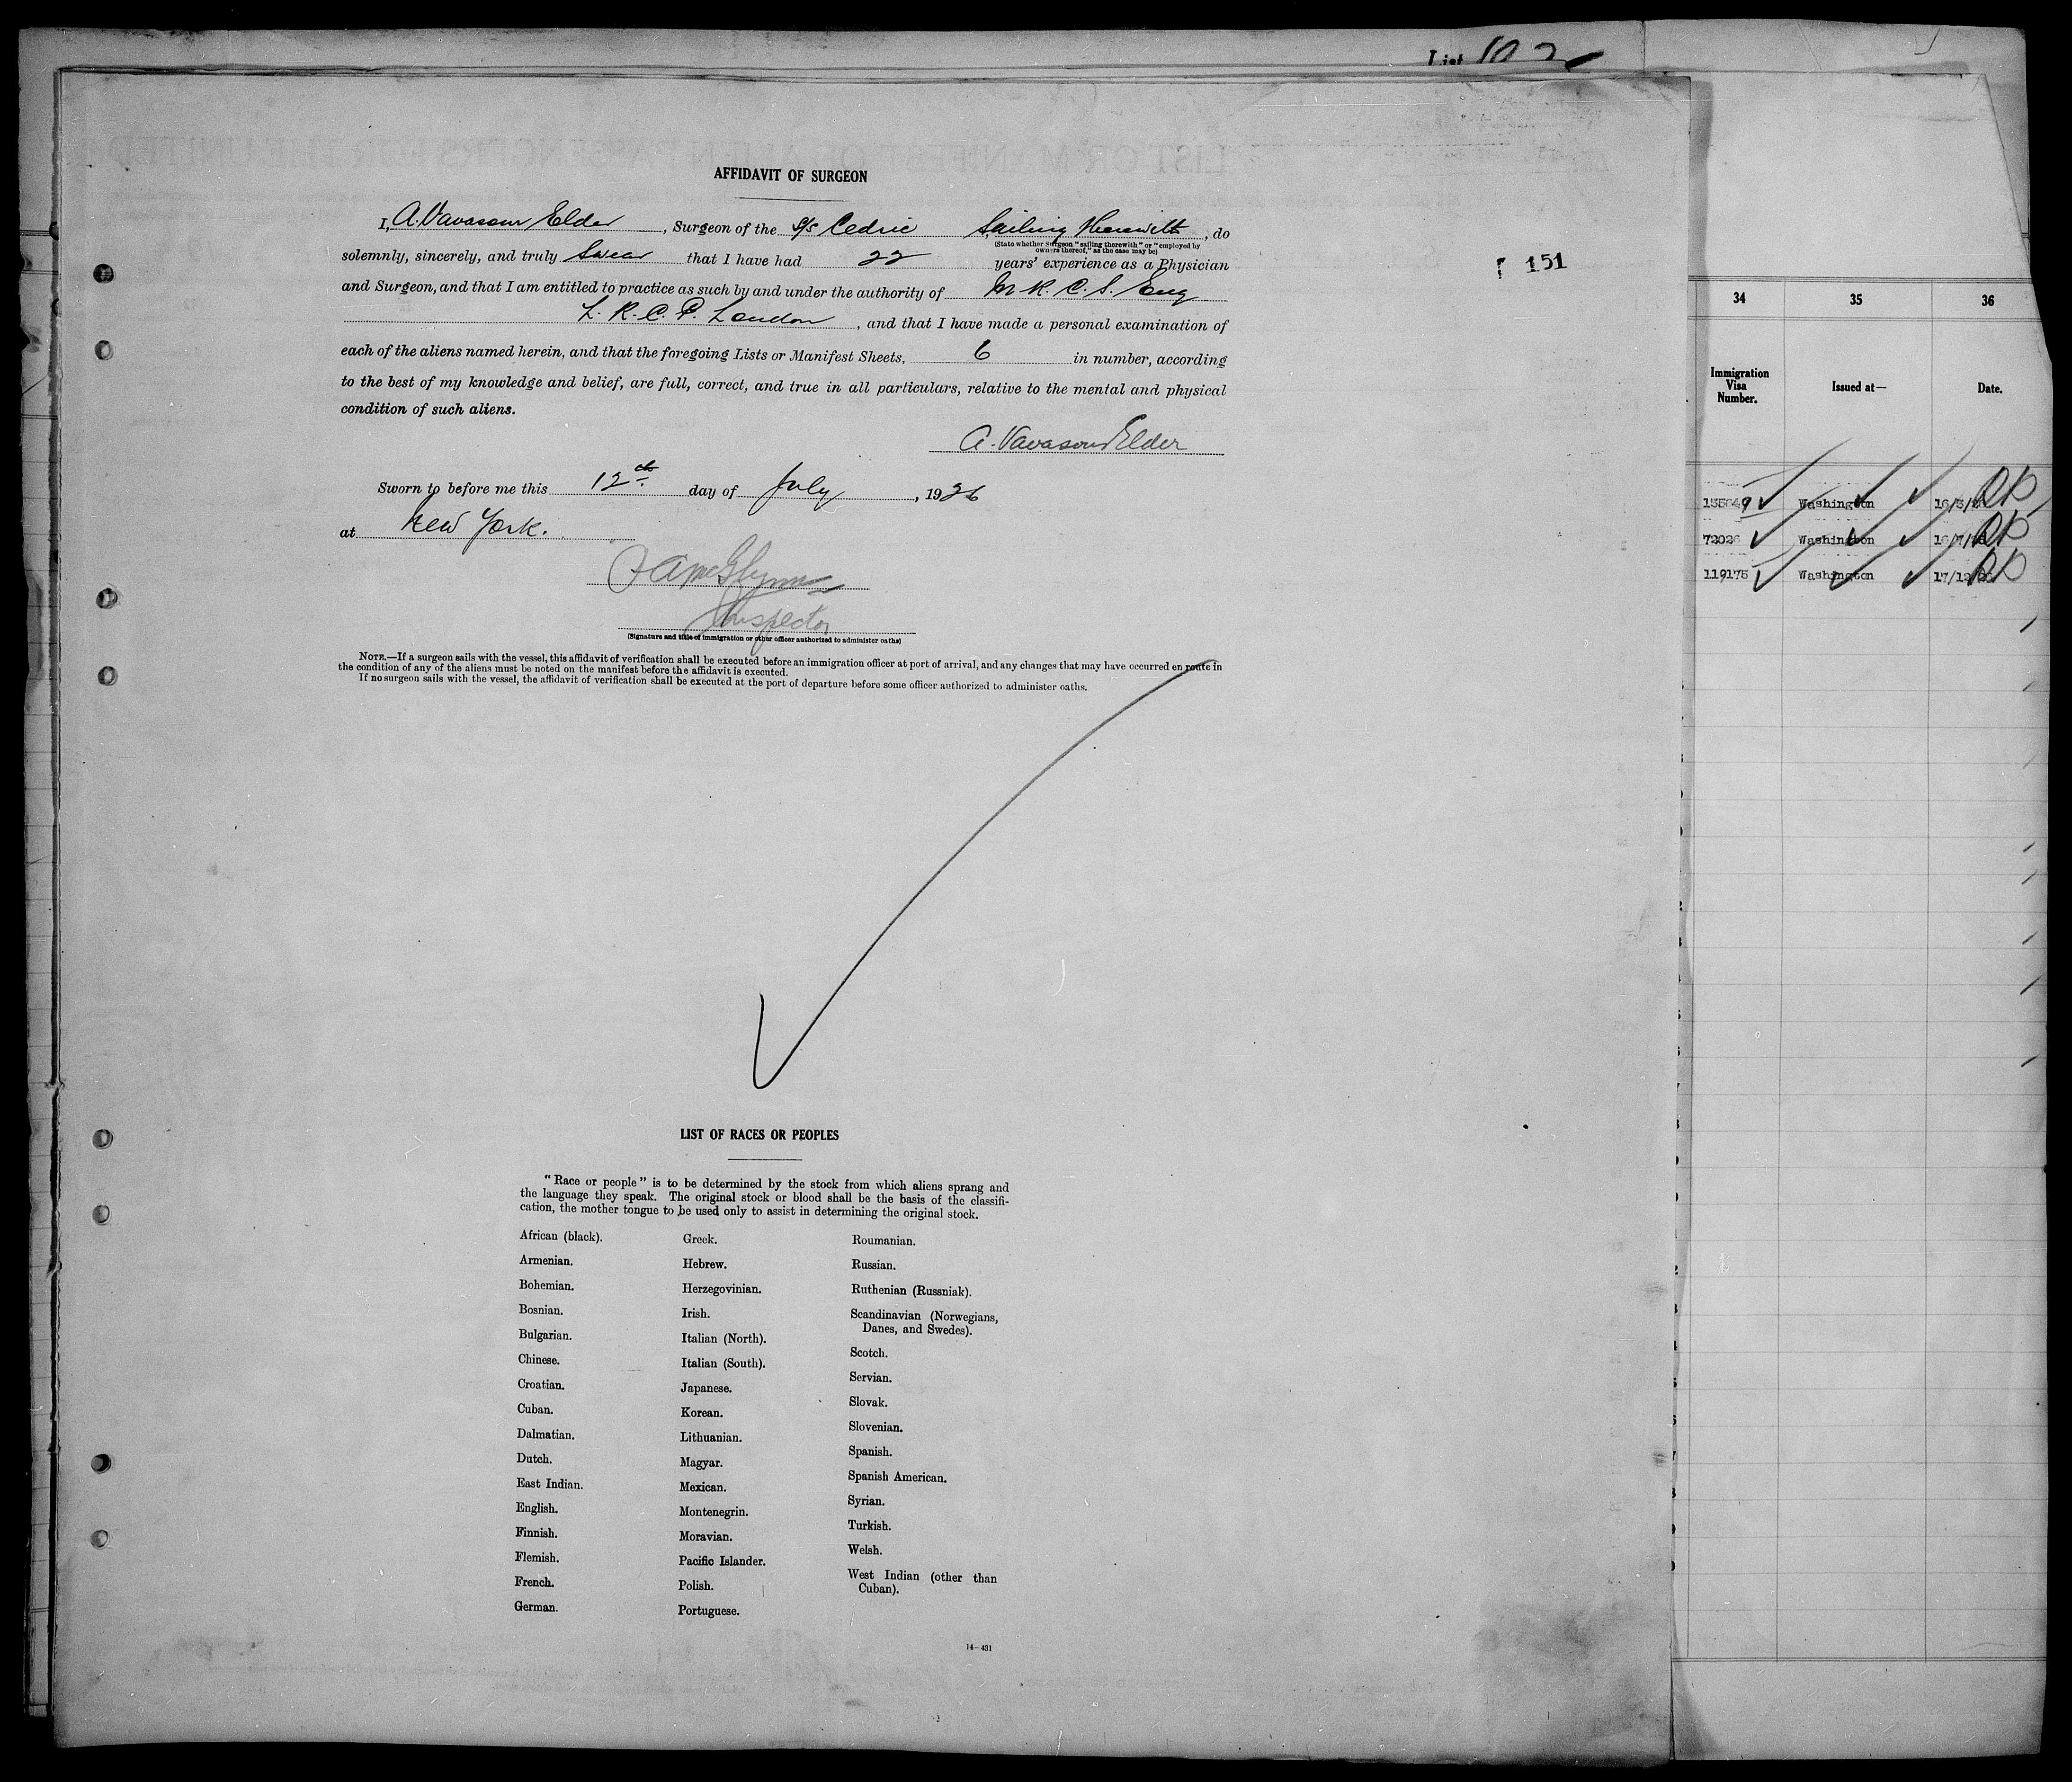 List 102
AFFIDAVIT OF SURGEON
I, A. Vavasour Elder, Surgeon of the S/S Cedric Sailing Therewith, do
(State whether Surgeon "sailing therewith" or "employed by
owners thereof," as the case may be)
solemnly, sincerely, and truly Swear that I have had 22 years' experience as a Physician
and Surgeon, and that I am entitled to practice as such by and under the authority of M.R.C.S. Eng
L.R.C.P. London, and that I have made a personal examination of
each of the aliens named herein, and that the foregoing Lists or Manifest Sheets, 6 in number, according
to the best of my knowledge and belief, are full, correct, and true in all particulars, relative to the mental and physical
condition of such aliens.
A. Vavasour Elder
Sworn to before me this 12th day of July, 1926
at New York.
Inspector
(Signature and title of immigration or other officer authorized to administer oaths)
NOTE.—If a surgeon sails with the vessel, this affidavit of verification shall be executed before an immigration officer at port of arrival, and any changes that may have occurred en route in
the condition of any of the aliens must be noted on the manifest before the affidavit is executed.
If no surgeon sails with the vessel, the affidavit of verification shall be executed at the port of departure before some officer authorized to administer oaths.
151
LIST OF RACES OR PEOPLES
"Race or people" is to be determined by the stock from which aliens sprang and
the language they speak. The original stock or blood shall be the basis of the classifi-
cation, the mother tongue to be used only to assist in determining the original stock.
African (black).
Armenian.
Bohemian.
Bosnian.
Bulgarian.
Chinese.
Croatian.
Cuban.
Dalmatian.
Dutch.
East Indian.
English.
Finnish.
Flemish.
French.
German.
Greek.
Hebrew.
Herzegovinian.
Irish.
Italian (North).
Italian (South).
Japanese.
Korean.
Lithuanian.
Magyar.
Mexican.
Montenegrin.
Moravian.
Pacific Islander.
Polish.
Portuguese.
Roumanian.
Russian.
Ruthenian (Russniak).
Scandinavian (Norwegians,
Danes, and Swedes).
Scotch.
Servian.
Slovak.
Slovenian.
Spanish.
Spanish American.
Syrian.
Turkish.
Welsh.
West Indian (other than
Cuban).
14—431
34 35 36
Immigration
Visa
Number.
Issued at—
Date.
Washington
72026 Washington
119175 Washington